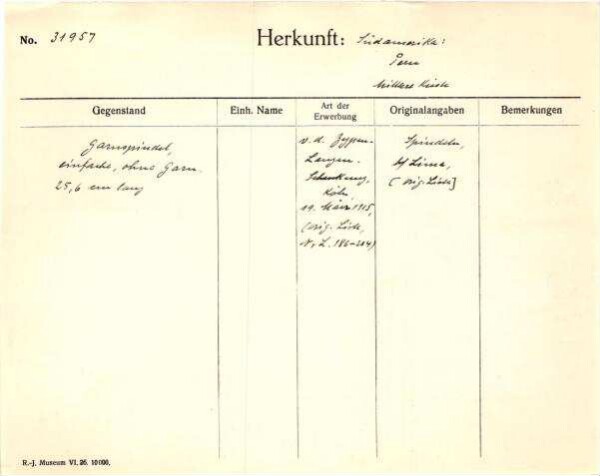 No. 31957
Herkunft: Südamerika:
Peru
Mittlere Küste
Gegenstand
Einh. Name
Art der
Erwerbung
Originalangaben
Bemerkungen
Garnspindel,
einfache, ohne Garn.
25,6 cm lang
v. d. Zypen-
Langen.
Schenkung,
Köln
19. März 1915,
(orig. Liste,
186-204)
Spindeln,
bf Lima,
[orig. Liste]
R.-J. Museum VI. 26. 10000.